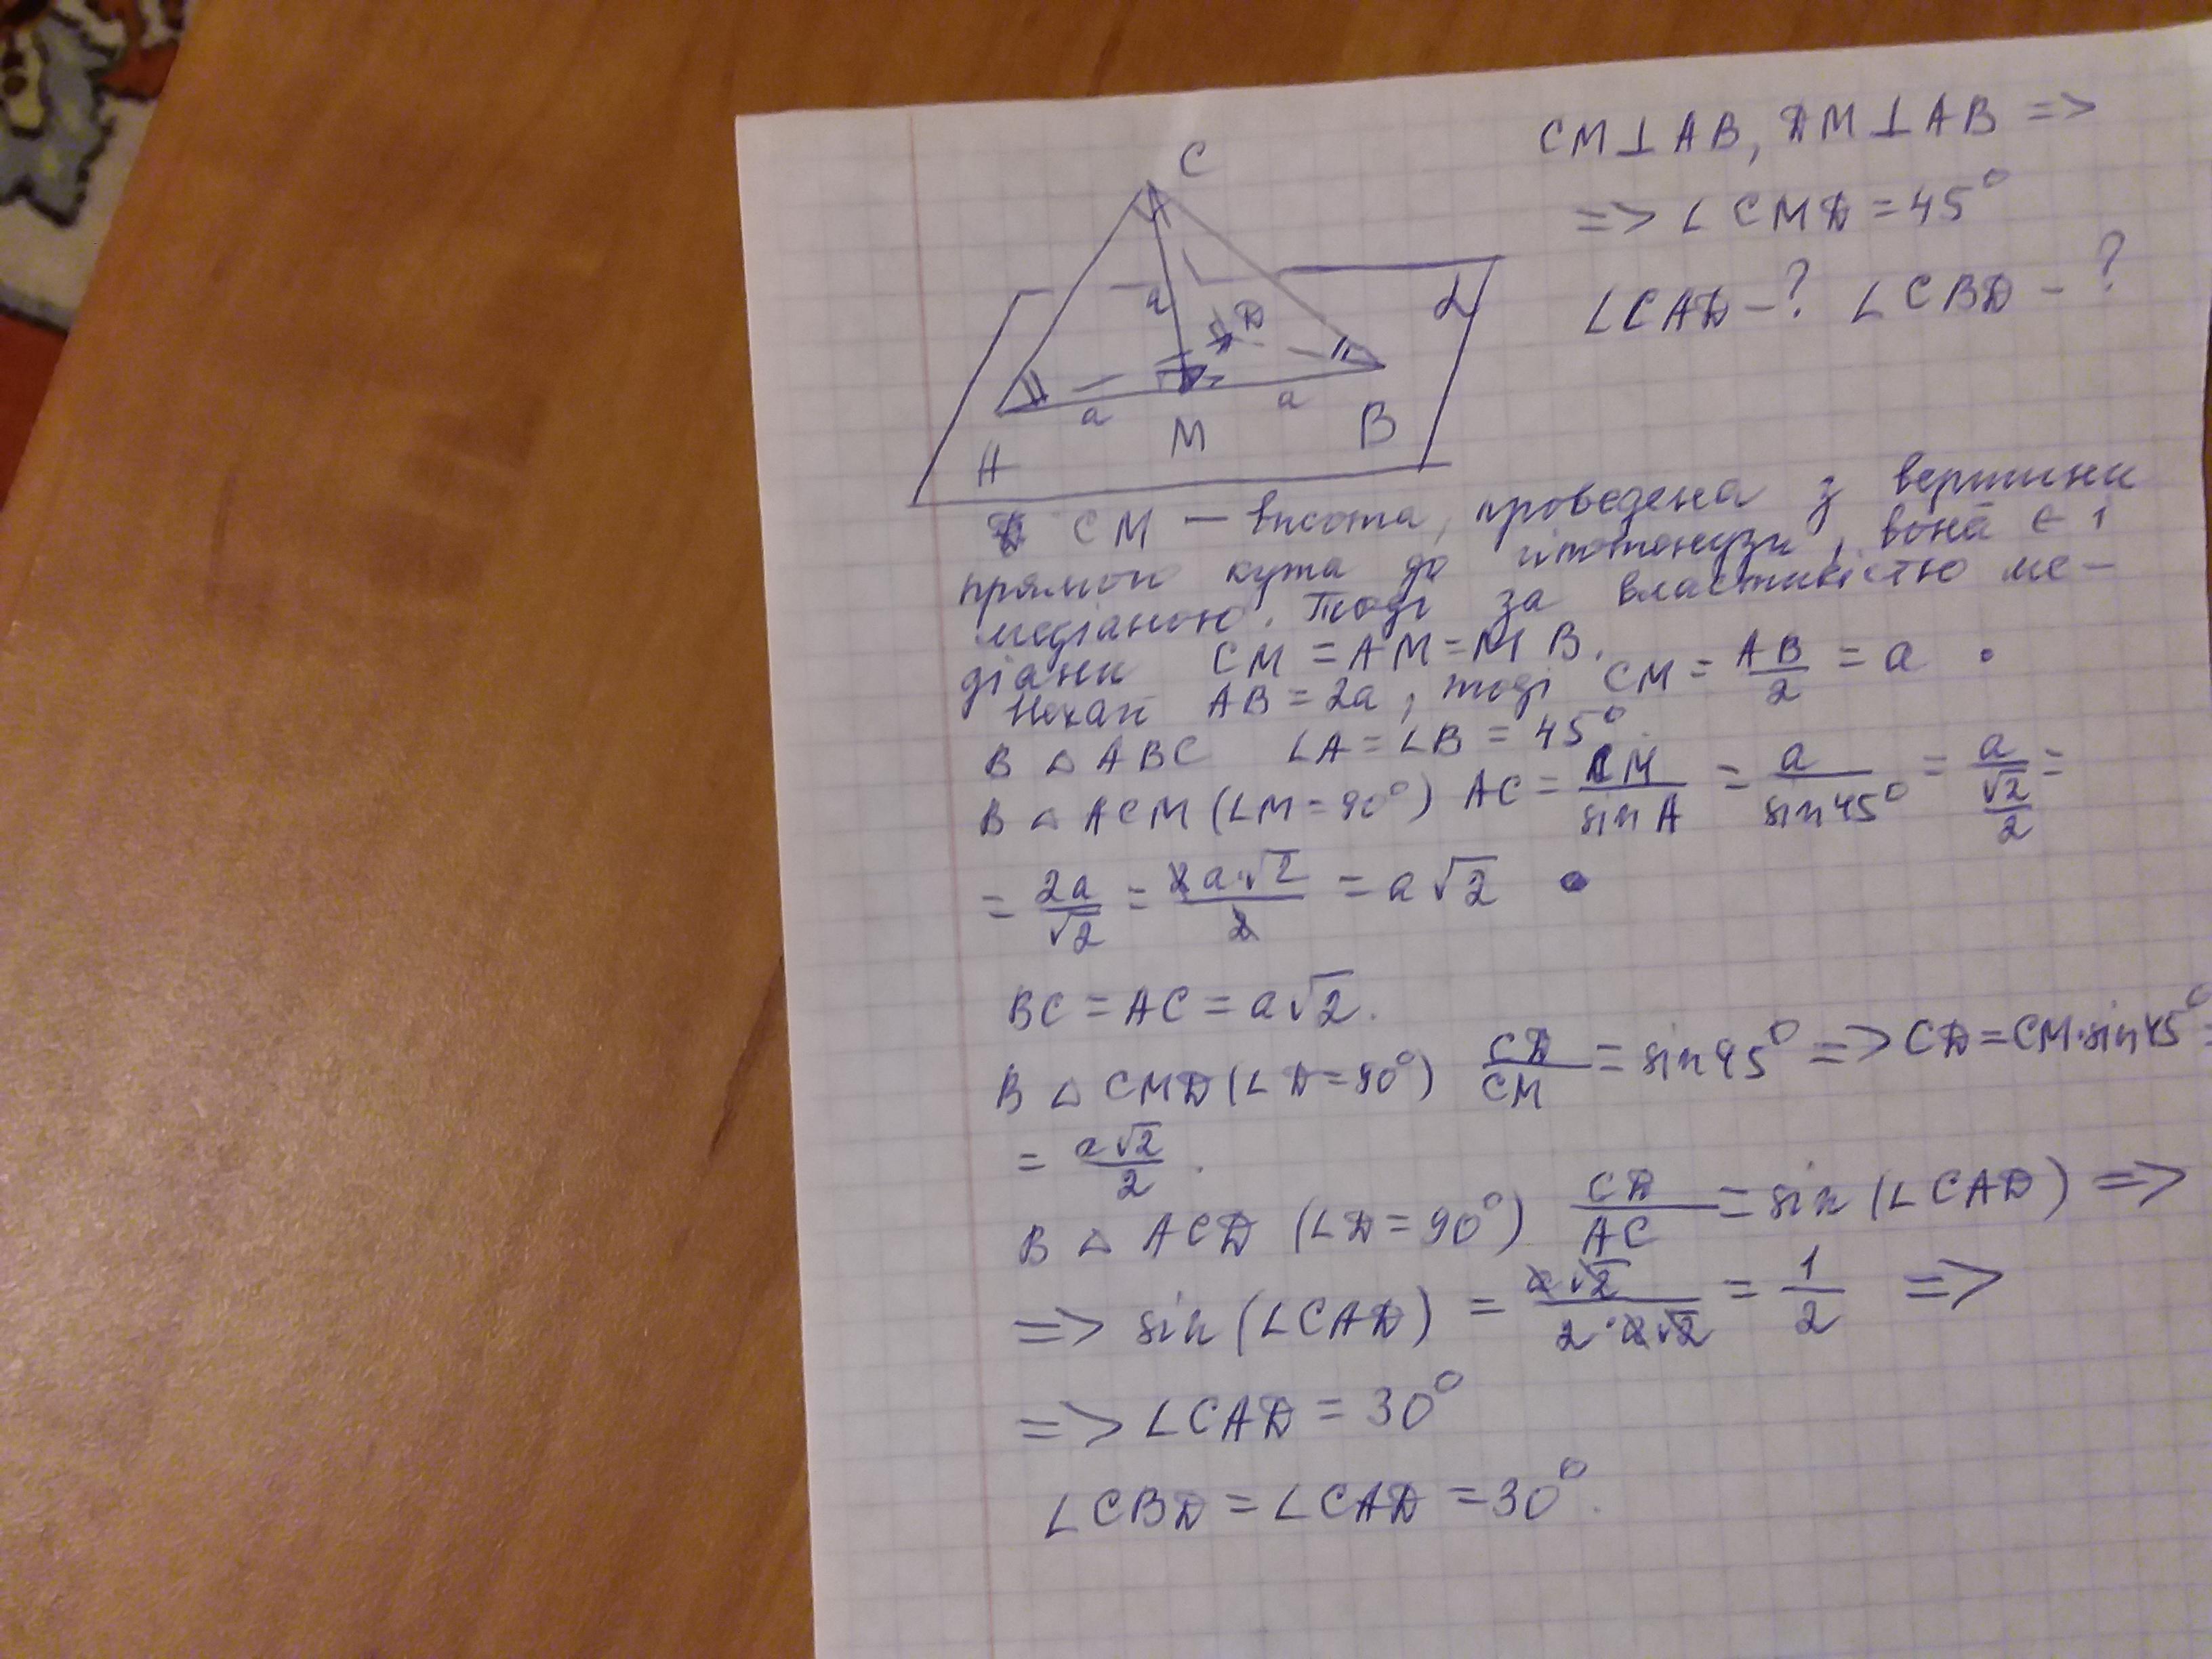 C
a
D
α
a
a
A
M
B
CM⊥AB, DM⊥AB =>
=> ∠CMD = 45°
∠CAD - ? ∠CBD - ?
CM — висота, проведена з вершини
прямого кута до гіпотенузи, вона є і
медіаною. Тоді за властивістю ме-
діани CM = AM = MB.
Нехай AB = 2a, тоді CM = AB/2 = a.
В △ ABC ∠A = ∠B = 45°.
В △ ACM (∠M = 90°) AC = CM/sin A = a/sin 45° = a/(√2/2) =
= 2a/√2 = 2a·√2/2 = a√2
BC = AC = a√2.
В △ CMD (∠D = 90°) CD/CM = sin 45° => CD = CM·sin 45° =
= a√2/2.
В △ ACD (∠D = 90°) CD/AC = sin (∠CAD) =>
=> sin (∠CAD) = a√2/2·a√2 = 1/2 =>
=> ∠CAD = 30°
∠CBD = ∠CAD = 30°.